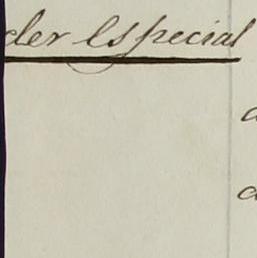 der Especial